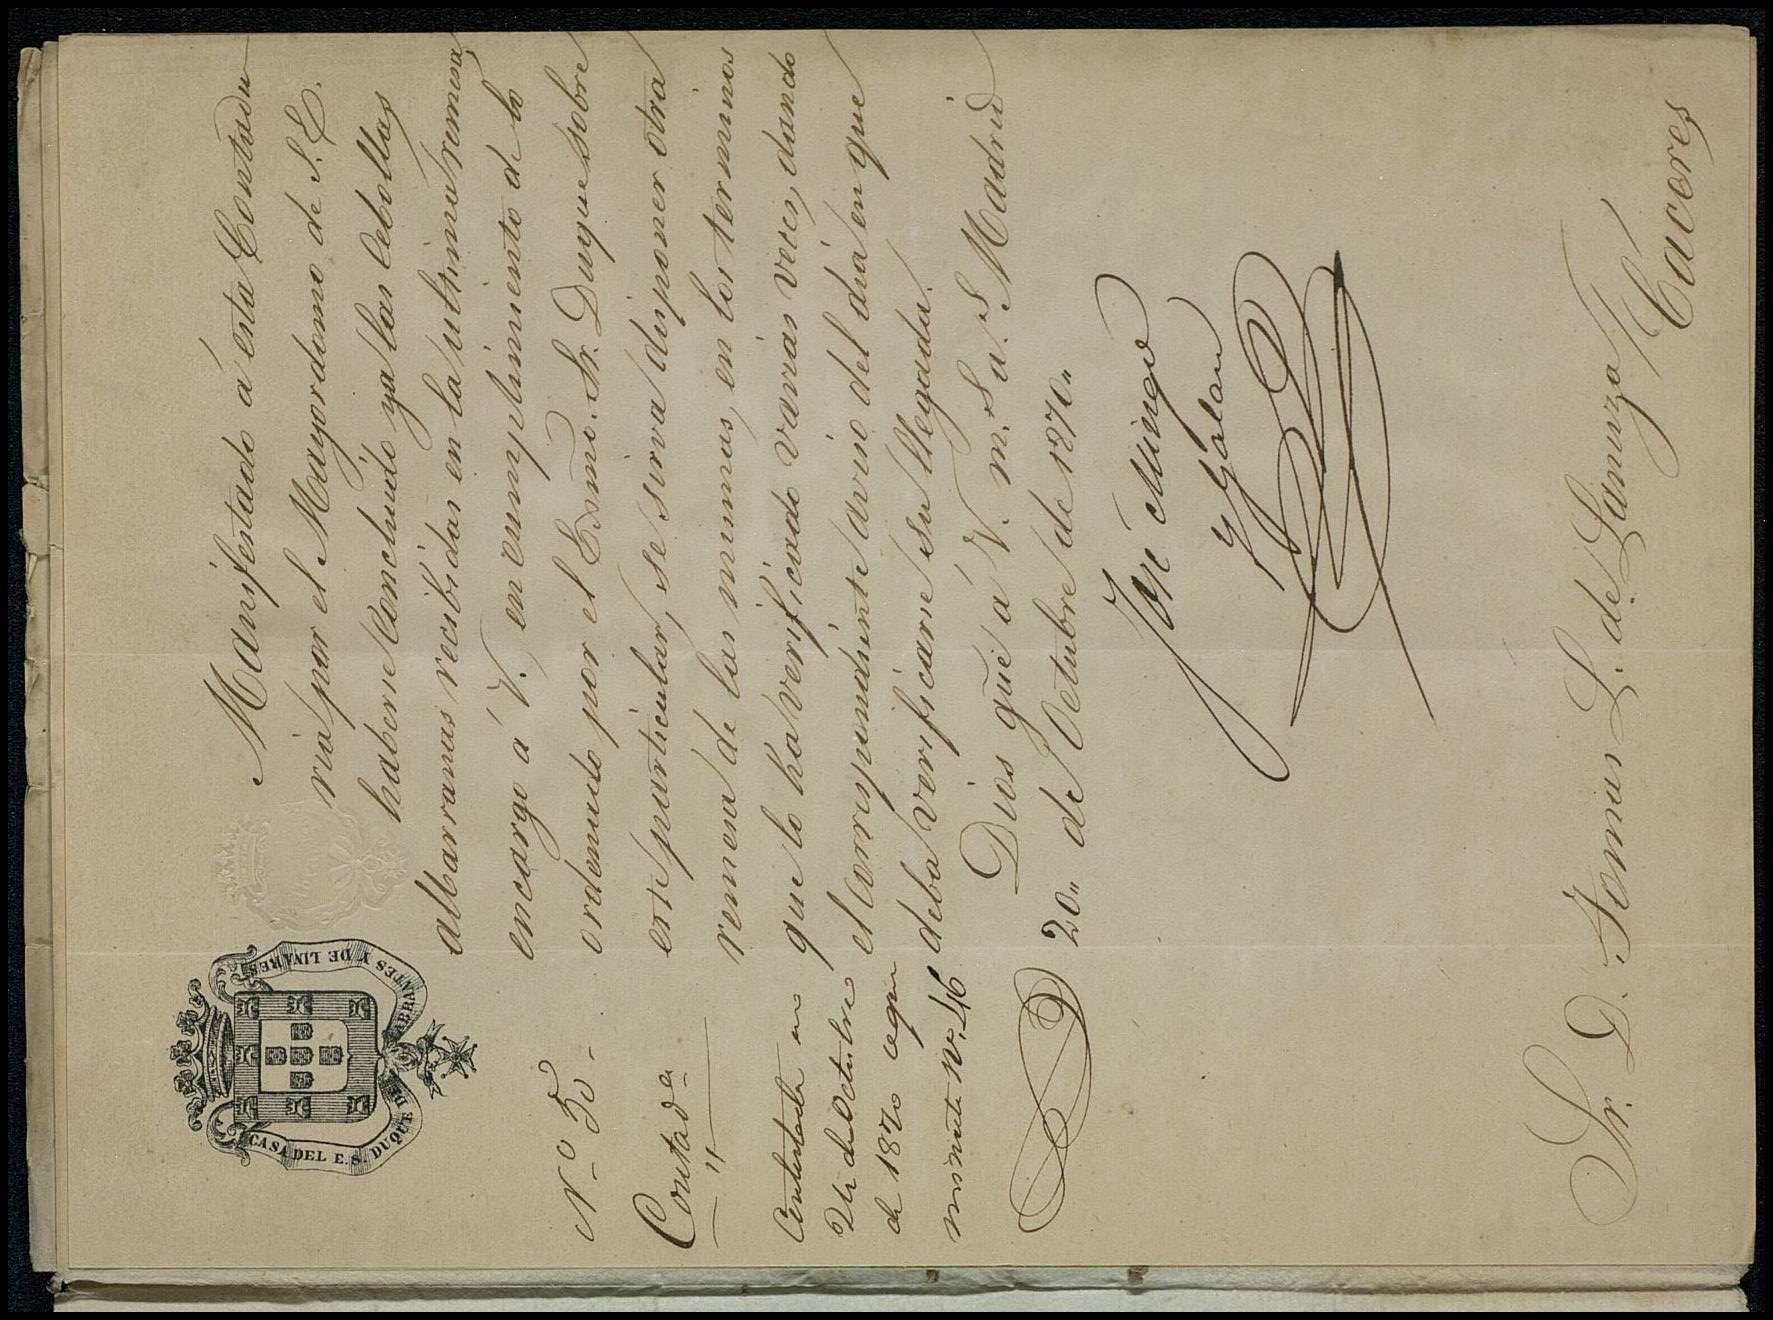 CASA DEL E. S. DUQUE DE ABRANTES Y DE LINARES
Nº 50
Contad.ª
Contestada en
24 del Octubre
de 1870 segun
minuta nº 46
Manifestado á esta Contadu
ria por el Mayordomo de S. E.
haberse concluido ya las cebollas
albarranas recibidas en la ultima remesa,
encargo á V., en cumplimiento de lo
ordenado por el Escmo. Sr. Duque sobre
este particular, se sirva disponer otra
remesa de las mismas, en los terminos
que lo ha verificado varias veces, dando
el correspondiente aviso del dia en que
deba verificarse su llegada.
Dios gue á V. m. s. a. s. Madrid
20 de Octubre de 1870.
José Mingo
y Galan
Sr. D. Tomas L. de Lanuza / Caceres